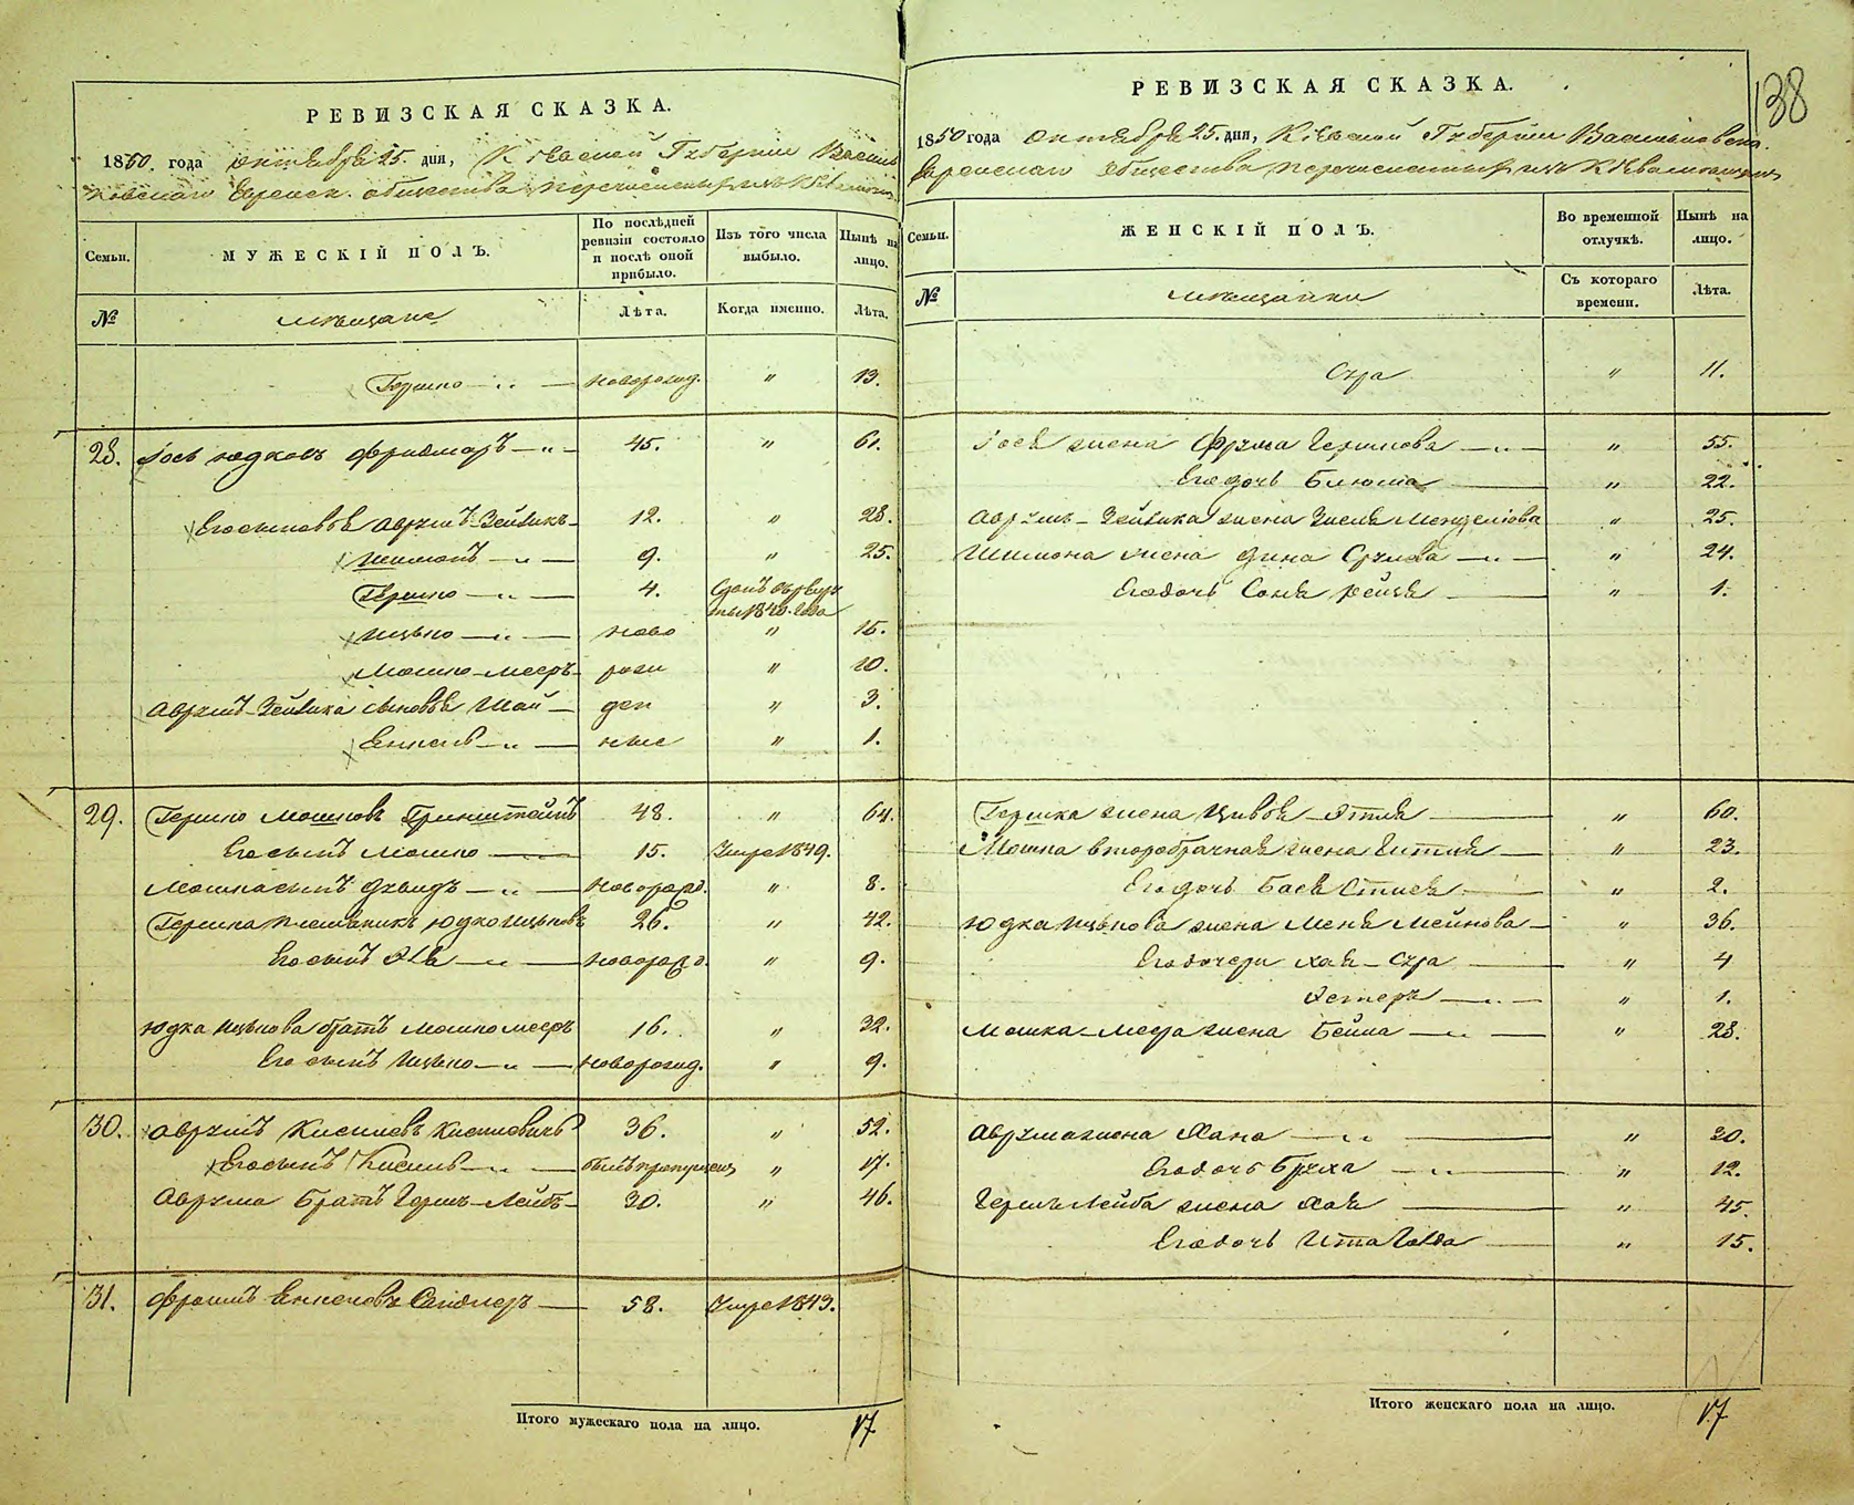 РЕВИЗСКАЯ СКАЗКА.
1850 года октября 25 дня, Киевской Губернии Василь
ковскаго Еврейск. общества
По послѣдней ревизіи состояло и послѣ оной прибыло.
Изъ того числа выбыло.
Нынѣ на лицо.
Семьи.
МУЖЕСКІЙ ПОЛЪ.
№
мѣщане
Лѣта.
Когда именно.
Лѣта.
Гершко — новорожд. " 13.
28. Іось Юдковъ — 45. " 61.
Его сыновья Аврумъ-Зейвикъ 12. " 28.
Шимонъ — 9. " 25.
Гершко — 4. 1840. года
Ицько — ново " 15.
Мошко-Мееръ рож " 10.
Аврумъ-Зейвика сыновья Шая — ден " 3.
Янкель — ные " 1.
29. Гершко Мошковъ Гринштейнъ 48. " 64.
Его сынъ Мошко — 15. Умре 1849.
Мошка сынъ Давидъ — новорожд. " 8.
Гершка племяникъ Юдко Ицьковъ 26. " 42.
Его сынъ — новорожд. " 9.
Юдка Ицькова братъ Мошко Мееръ 16. " 32.
Его сынъ Ицько — новорожд. " 9.
30. Аврумъ Кисилевъ Кисилевичъ 36. " 52.
Его сынъ Кисиль — былъ пропущен " 17.
Аврума братъ Герш-Лейбъ — 30. " 46.
31. Фроимъ Янкелевъ — 58. Умре 1843.
Итого мужескаго пола на лицо. 17
138
РЕВИЗСКАЯ СКАЗКА.
1850 года октября 25. дня, Киевской Губернии Васильковска.
Еврейскаго общества
Семьи.
ЖЕНСКІЙ ПОЛЪ.
Во временной отлучкѣ.
Нынѣ на лицо.
№
мѣщанки
Съ котораго времени.
Лѣта.
Сура " 11.
Іося жена Фрума Гершкова — " 55.
Его дочь Блюма — " 22.
Аврумъ-Зейвика жена Зисля Менделіова " 25.
Шимона жена Дина Срулева — " 24.
Его дочь Соня Рейзя — " 1.
Гершка жена Цивья-Этля — " 60.
Мошка второбрачная жена Гитля — " 23.
Его дочь Бася — " 2.
Юдка Ицькова жена Меня Мейнова — " 36.
Его дочери Хая-Сура — " 4
Эстеръ — " 1.
Мошка-Меера жена Бейла — " 28.
Аврума жена Хана — " 30.
Его дочь Бруха — " 12.
Гершъ Лейба жена Хая — " 45.
Его дочь Ита Голда — " 15.
Итого женскаго пола на лицо. 17